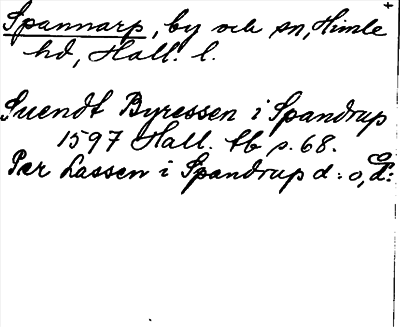 Spannarp, by och sn, Himle
hd, Hall. l.
Suendt Byressen i Spandrup
1597 Hall. tb s. 68.
Per Lassen i Spandrup d:o, d:o